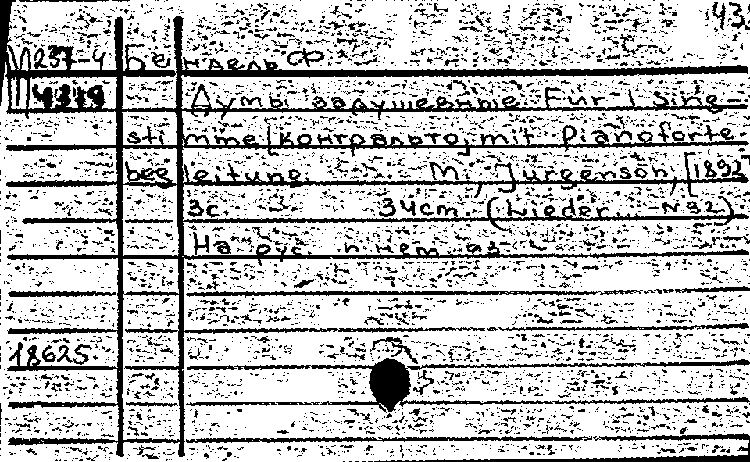 43
М 237-4 Бендель Ф
4319 Думы задушевные Für 1 Sing-
stimme [контральто] mit Pianoforte-
begleitung. М., Jurgenson, [1892
3с. 34cm. (Lieder... -N32).
На рус. и нем. яз
18625